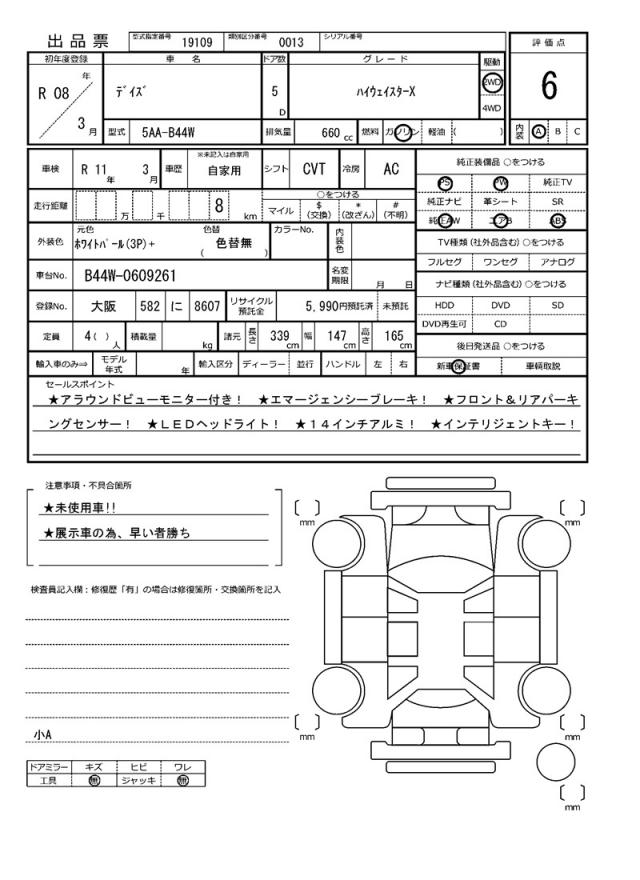 出品票 型式指定番号 19109 類別区分番号 0013 シリアル番号
評価点
6
内装 A B C
初年度登録 車名 ドア数 グレード 駆動
R 08 年 3 月 デイズ 5 D ハイウェイスターX 2WD 4WD
型式 5AA-B44W 排気量 660 cc 燃料 ガソリン 軽油 ( )
車検 R 11 年 3 月 車歴 ※未記入は自家用 自家用 シフト CVT 冷房 AC
走行距離 万 千 8 km ○をつける
マイル $(交換) *(改ざん) #(不明)
外装色 元色 ホワイトパール(3P)+ 色替 ( 色替無 ) カラーNo. 内装色
車台No. B44W-0609261 名変期限 月 日
登録No. 大阪 582 に 8607 リサイクル預託金 5,990円預託済 未預託
定員 4( )人 積載量 kg 諸元 長さ 339 cm 幅 147 cm 高さ 165 cm
輸入車のみ⇒ モデル年式 年 輸入区分 ディーラー 並行 ハンドル 左 右
純正装備品 ○をつける
PS PW 純正TV
純正ナビ 革シート SR
純正AW エアB ABS
TV種類(社外品含む)○をつける
フルセグ ワンセグ アナログ
ナビ種類(社外品含む)○をつける
HDD DVD SD
DVD再生可 CD
後日発送品 ○をつける
新車保証書 車輌取説
セールスポイント
★アラウンドビューモニター付き! ★エマージェンシーブレーキ! ★フロント＆リアパーキ
ングセンサー! ★ＬＥＤヘッドライト! ★１４インチアルミ! ★インテリジェントキー!
注意事項・不具合箇所
★未使用車!!
★展示車の為、早い者勝ち
検査員記入欄：修復歴「有」の場合は修復箇所・交換箇所を記入
小A
ドアミラー キズ ヒビ ワレ
工具 無 ジャッキ 無
[ ] mm
[ ] mm
[ ] mm
[ ] mm
[ ] mm